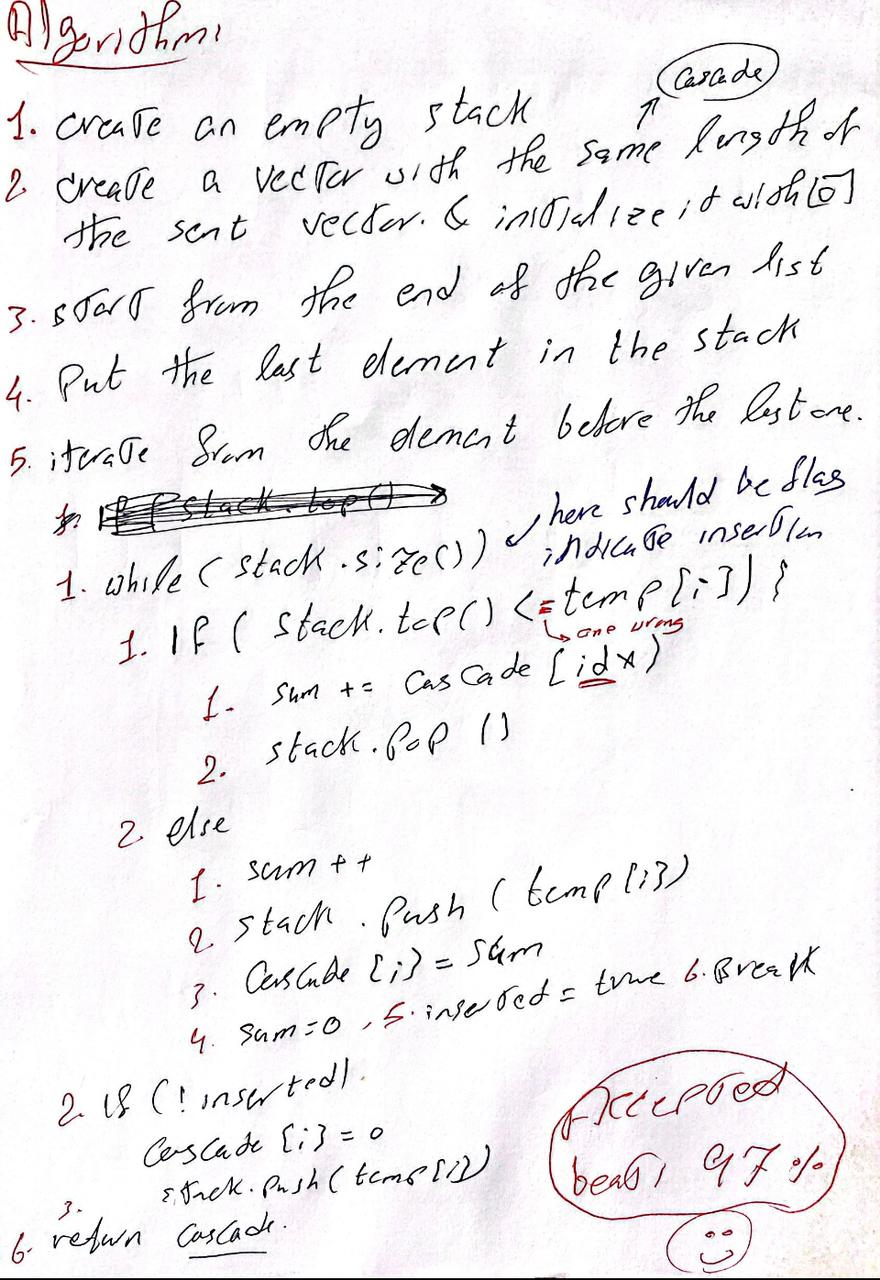 Algorithm:
cascade
1. create an empty stack
2 create a vector with the same length of
the sent vector. & initialize it with [0]
3. start from the end of the given list
4. Put the last element in the stack
5. iterate from the element before the last one.
stack.top()
here should be flag
indicate insertion
1. while (stack.size())
1. If ( stack.top() <= temp[i]) {
one wrong
1. sum += Cascade [idx)
2. stack.pop ()
2 else
1. sum ++
2 stack . Push ( temp[i])
3. Cascade [i] = sum
4. sum=0 , 5. inserted = true 6. Break
2. if (! inserted).
Cascade [i] = 0
3. stack.push( temp[i])
6. return Cascade.
Accepted
beats 97 %